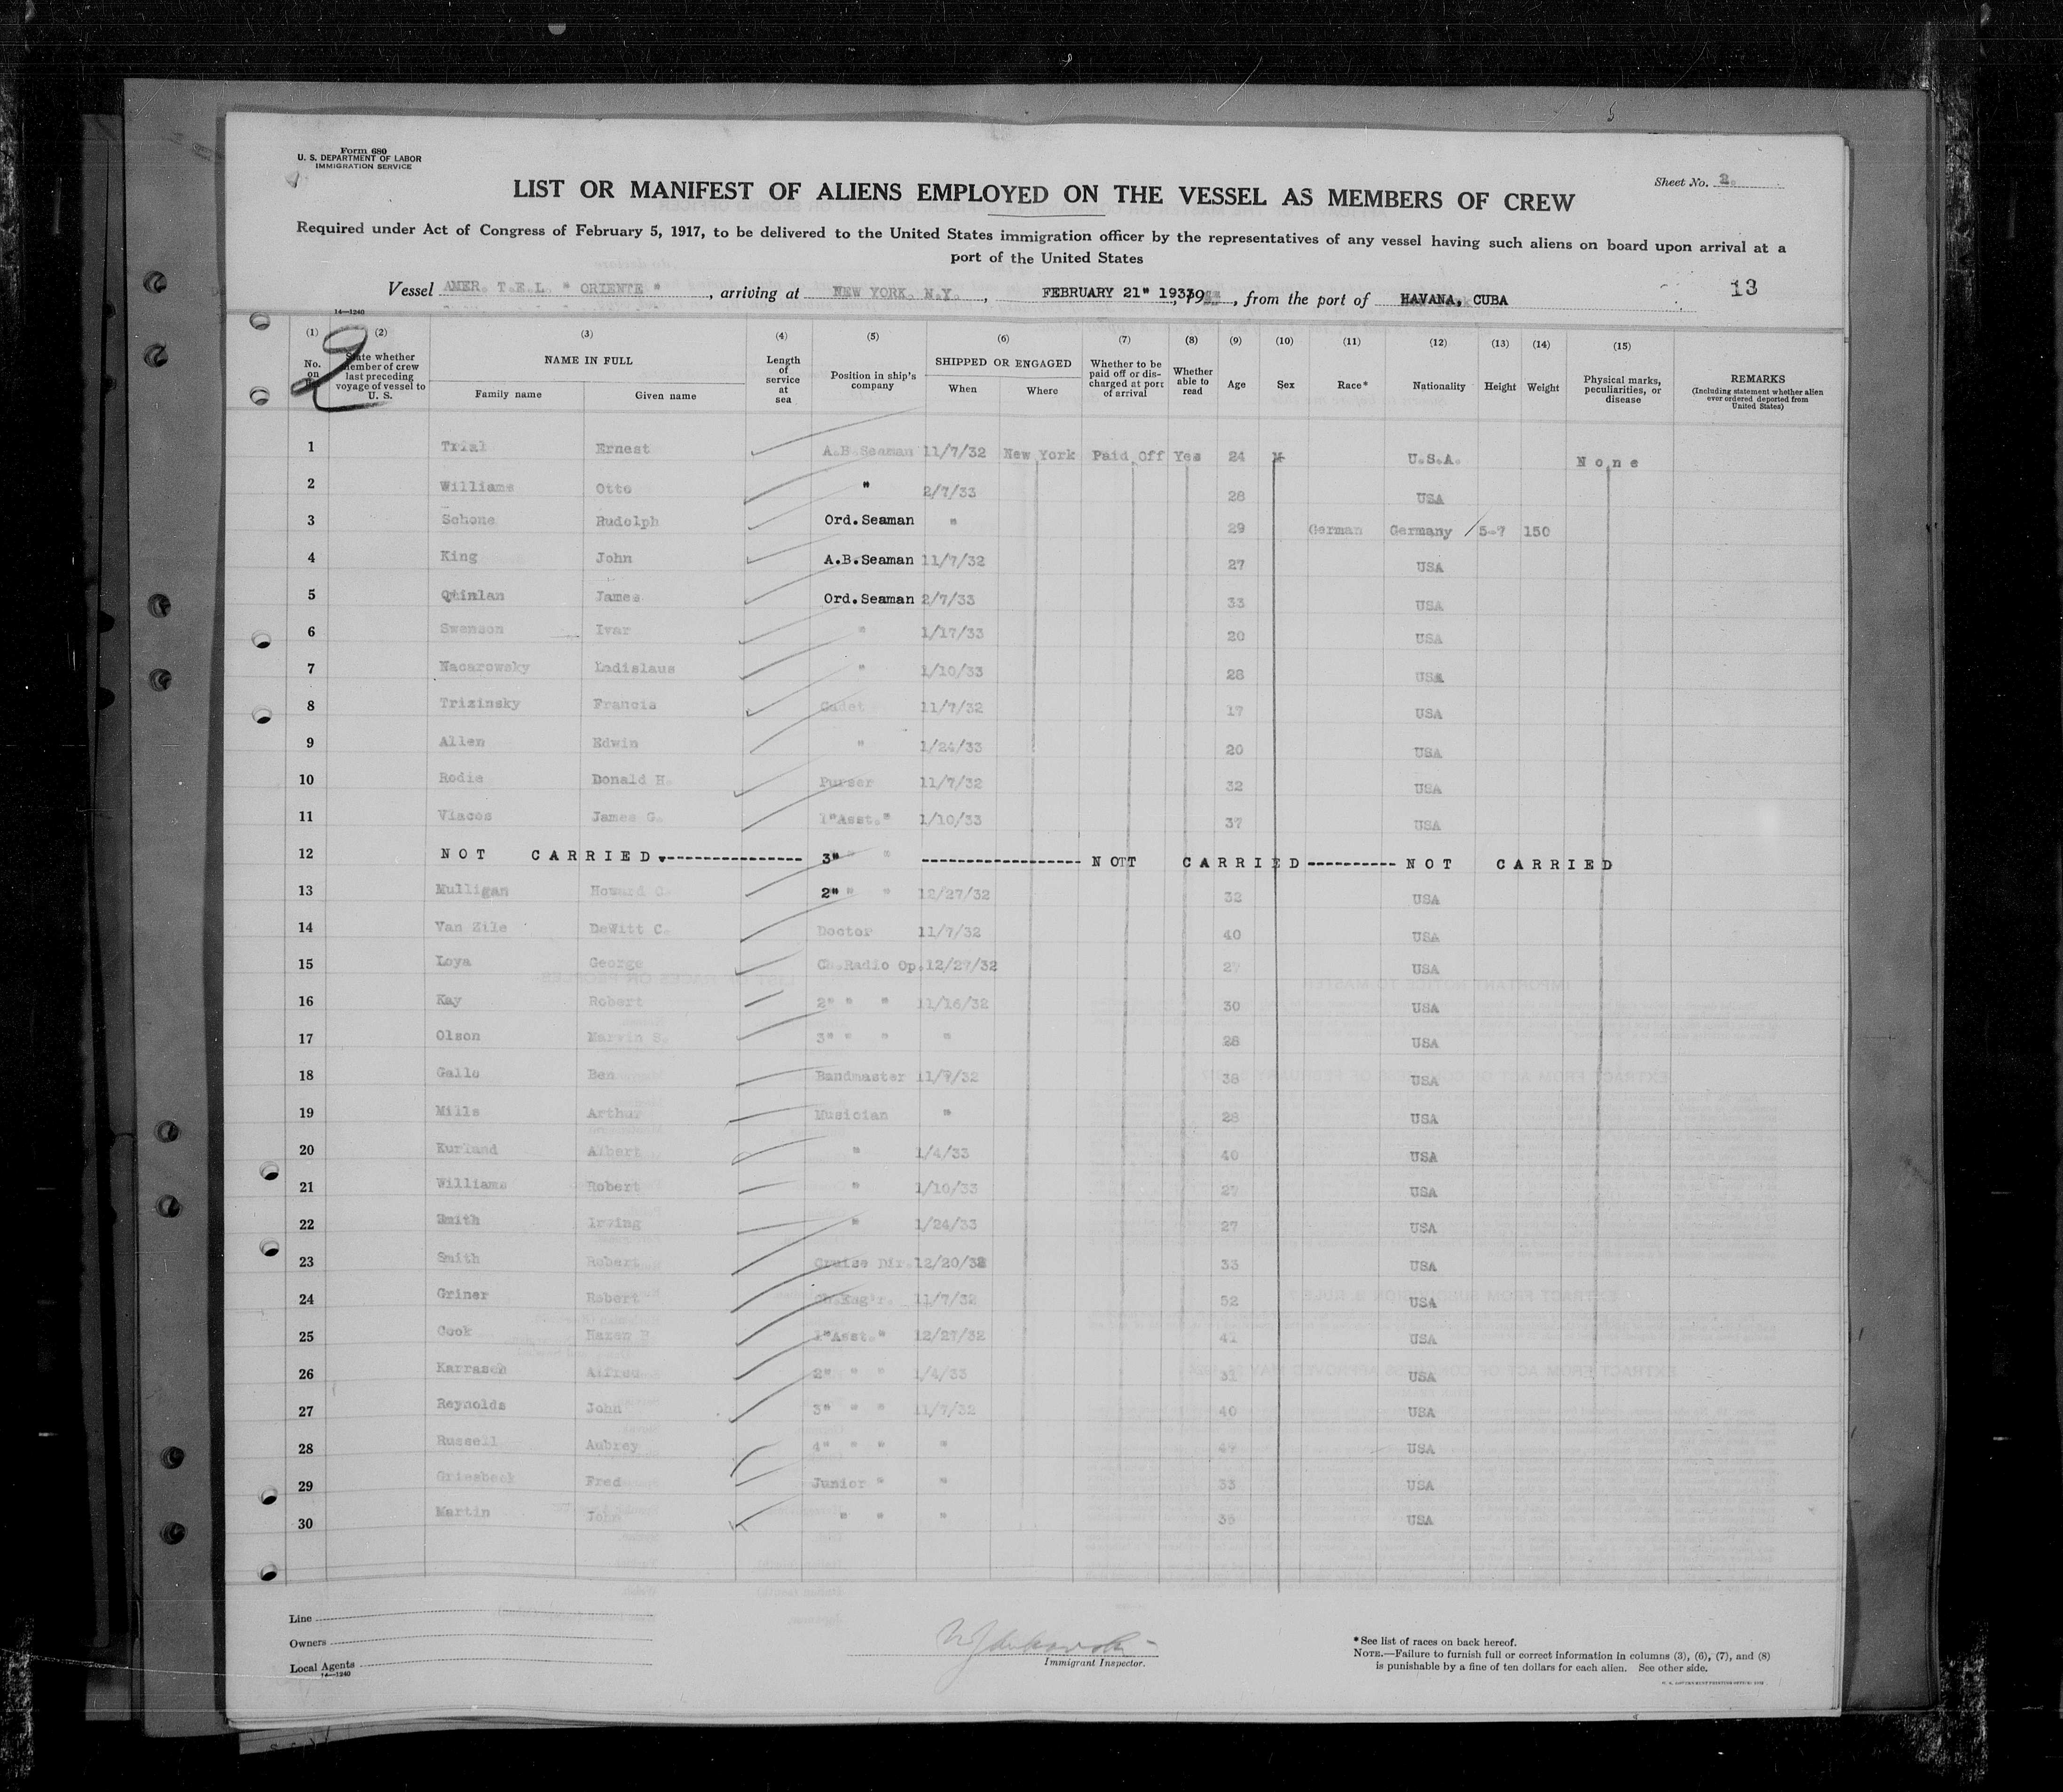 Form 680
U. S. DEPARTMENT OF LABOR
IMMIGRATION SERVICE
Sheet No. 2.
LIST OR MANIFEST OF ALIENS EMPLOYED ON THE VESSEL AS MEMBERS OF CREW
Required under Act of Congress of February 5, 1917, to be delivered to the United States immigration officer by the representatives of any vessel having such aliens on board upon arrival at a
port of the United States
Vessel AMER. T.E.L. " ORIENTE ", arriving at NEW YORK. N.Y., FEBRUARY 21" 1933, 19, from the port of HAVANA, CUBA
13
14—1240
2
(1) (2) (3) (4) (5) (6) (7) (8) (9) (10) (11) (12) (13) (14) (15)
No. on State whether member of crew last preceding voyage of vessel to U. S. NAME IN FULL Family name Given name Length of service at sea Position in ship's company SHIPPED OR ENGAGED When Where Whether to be paid off or discharged at port of arrival Whether able to read Age Sex Race* Nationality Height Weight Physical marks, peculiarities, or disease REMARKS (Including statement whether alien ever ordered deported from United States)
1 Trial Ernest A.B.Seaman 11/7/32 New York Paid Off Yes 24 M U.S.A. None
2 Williams Otto " 2/7/33 28 USA
3 Schone Rudolph Ord.Seaman " 29 German Germany 5-7 150
4 King John A.B.Seaman 11/7/32 27 USA
5 Quinlan James Ord.Seaman 2/7/33 33 USA
6 Swenson Ivar " 1/17/33 20 USA
7 Nacarowsky Ladislaus " 1/10/33 28 USA
8 Trizinsky Francis Cadet 11/7/32 17 USA
9 Allen Edwin " 1/24/33 20 USA
10 Rodis Donald H. Purser 11/7/32 32 USA
11 Viacos James G. 1"Asst." 1/10/33 37 USA
12 NOT CARRIED.---------------- 3" " ------------------NOTT CARRIED----------NOT CARRIED
13 Mulligan Howard 2" " " 12/27/32 32 USA
14 Van Zile DeWitt C. Doctor 11/7/32 40 USA
15 Loya George Ch.Radio Op. 12/27/32 27 USA
16 Kay Robert 2" " " 11/16/32 30 USA
17 Olson Marvin S. 3" " " " 28 USA
18 Gallo Ben Bandmaster 11/7/32 38 USA
19 Mills Arthur Musician " 28 USA
20 Kurland Albert " 1/4/33 40 USA
21 Williams Robert " 1/10/33 27 USA
22 Smith Irving " 1/24/33 27 USA
23 Smith Robert Cruise Dir. 12/20/32 33 USA
24 Griner Robert Ch.Eng'r. 11/7/32 52 USA
25 Cook Hazen 1"Asst." 12/27/32 41 USA
26 Karrasch Alfred 2" " " 1/4/33 31 USA
27 Reynolds John 3" " " 11/7/32 40 USA
28 Russell Aubrey 4" " " " 49 USA
29 Griesbeck Fred Junior " " 33 USA
30 Martin John " " " USA
Line
Owners
Local Agents
14—1240
Immigrant Inspector.
* See list of races on back hereof.
NOTE.—Failure to furnish full or correct information in columns (3), (6), (7), and (8)
is punishable by a fine of ten dollars for each alien. See other side.